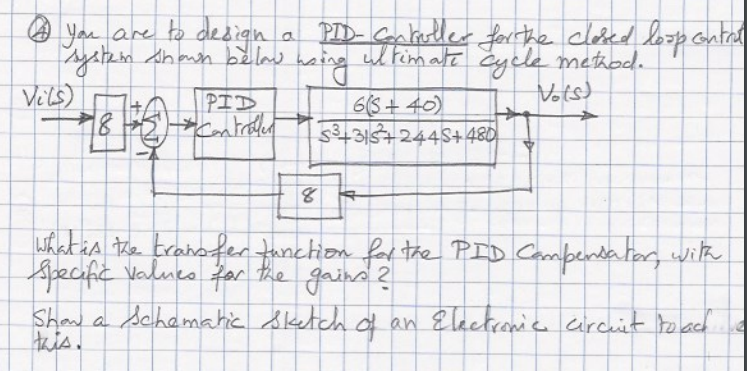 ④ You are to design a PID-Controller for the closed loop control
system shown below using ultimate cycle method.
Vi(s)
8
+
Σ
-
PID
Controller
6(S + 40)
S³+31S²+244S+480
Vo(s)
8
What is the transfer function for the PID Compensator, with
specific values for the gains?
Show a schematic sketch of an Electronic circuit to
this.